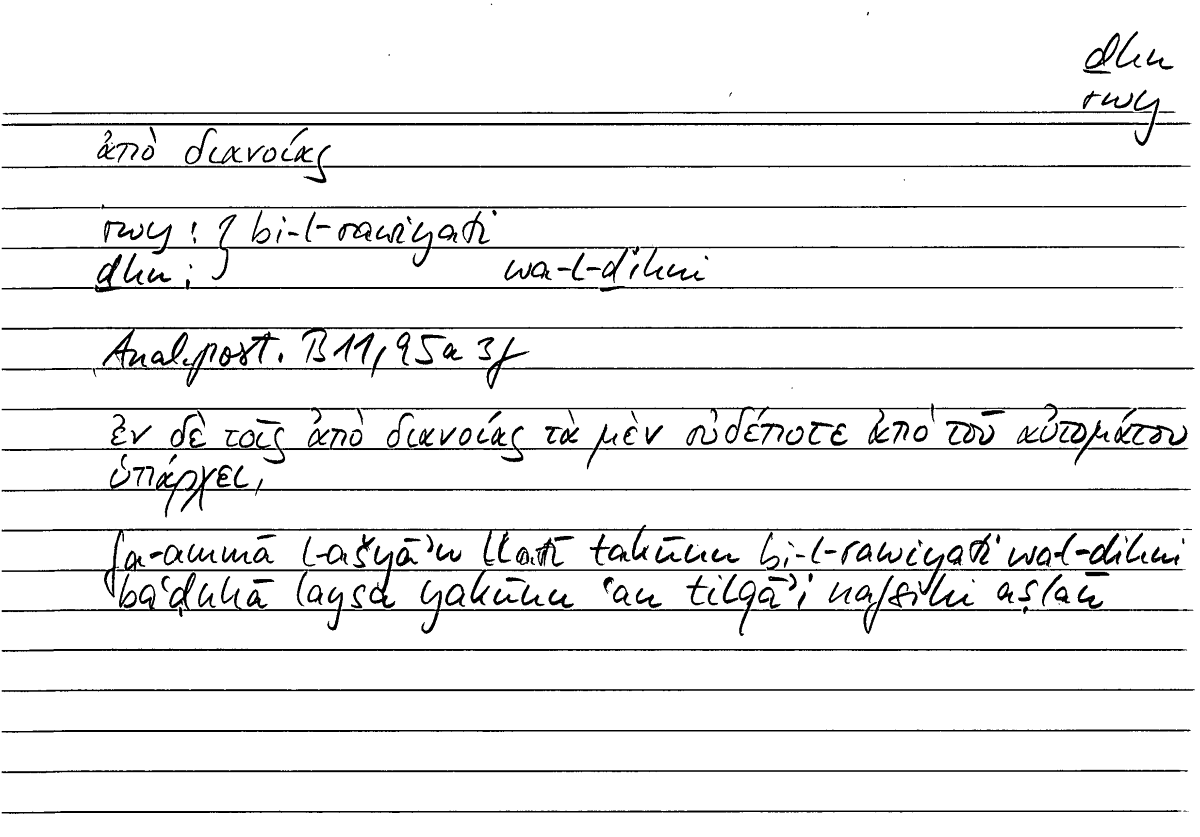 ḏhn
rwy
ἀπὸ διανοίας
rwy : } bi-l-rawīyati
ḏhn : } wa-l-ḏihni
Anal. post. B 11, 95a 3f
ἐν δὲ τοῖς ἀπὸ διανοίας τὰ μὲν οὐδέποτε ἀπὸ τοῦ αὐτομάτου
ὑπάρχει,
fa-ammā l-ašyāʾu llatī takūnu bi-l-rawiyati wa-l-dihni
baʿḍuhā laysa yakūnu ʿan tilqāʾi nafsihi aṣlan